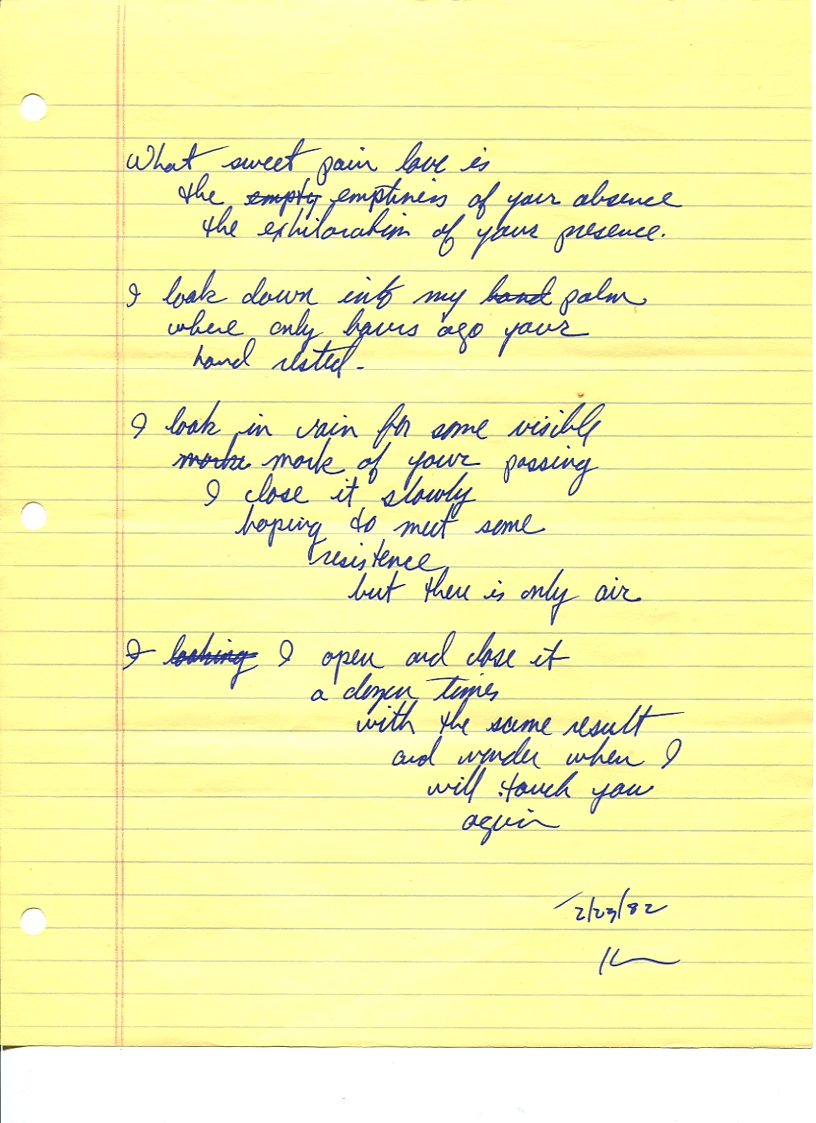 What sweet pain love is
the empty emptiness of your absence
the exhiloration of your presence.
I look down into my hand palm
where only hours ago your
hand rested.
I look in vain for some visible
marke mark of your passing
I close it slowly
hoping to meet some
resistence
but there is only air
I looking I open and close it
a dozen times
with the same result
and wonder when I
will touch you
again
2/23/82